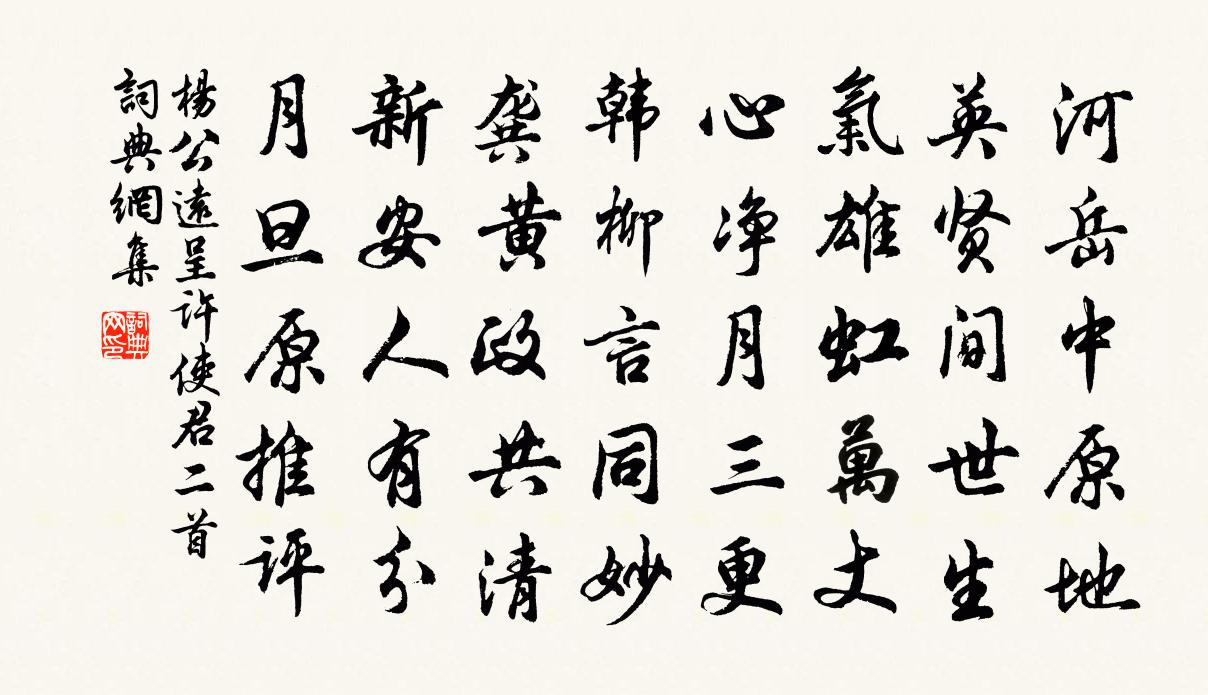 河岳中原地
英贤间世生
氣雄虹萬丈
心净月三更
韩柳言同妙
龚黄政共清
新安人有分
月旦原推评
楊公遠呈许使君二首
詞典網集
詞典网印